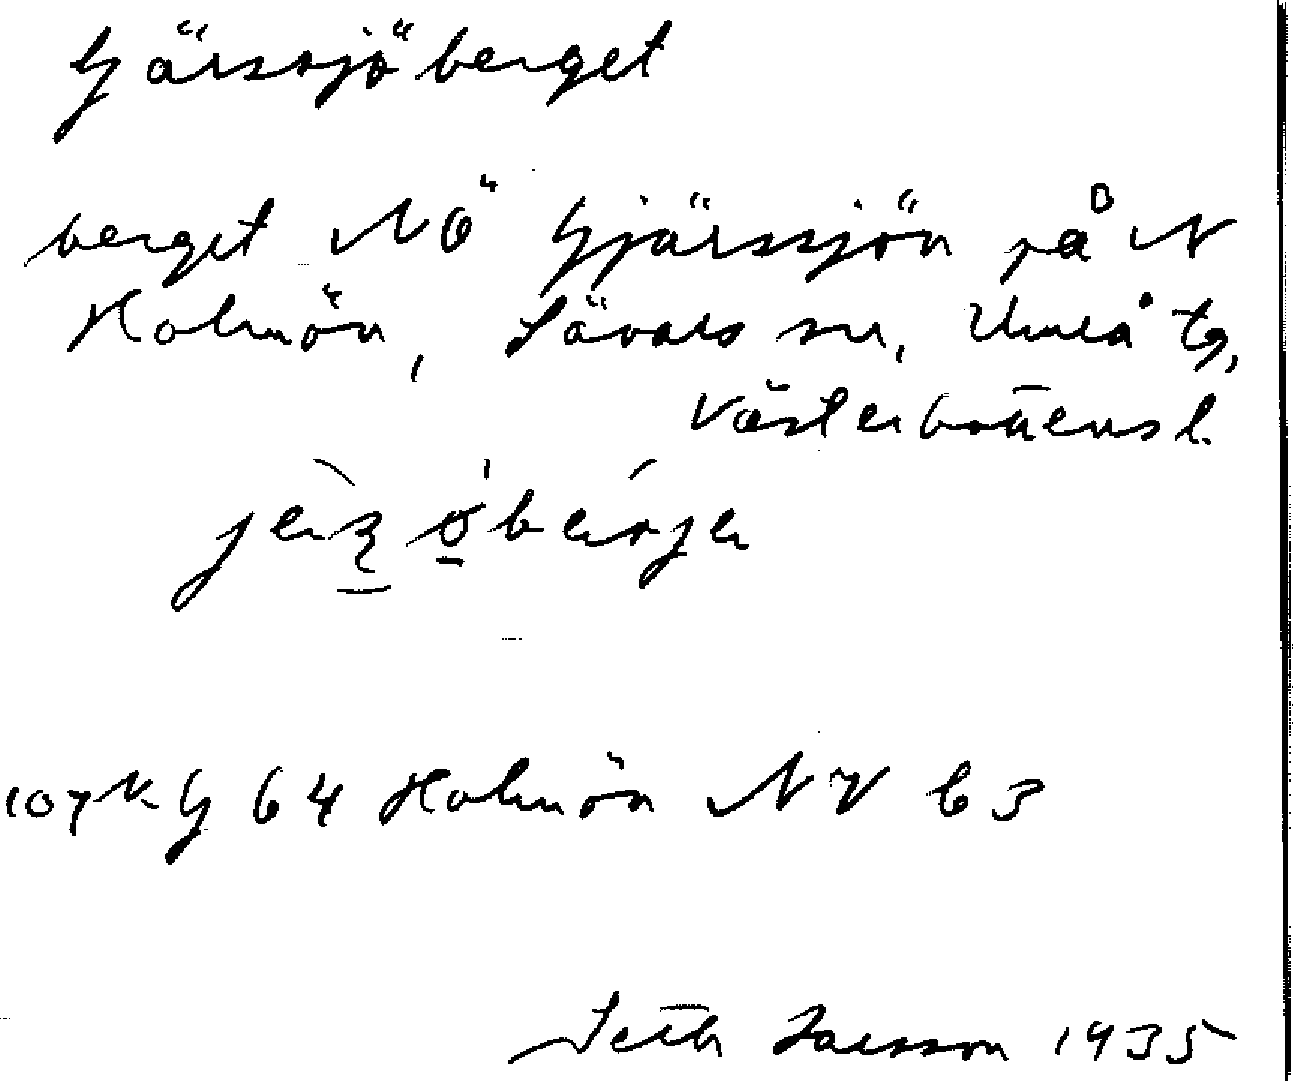 Gärssjöberget
berget NÖ Gjärssjön på N
Holmön, Sävars sn, Umeå tg,
Västerbottens l.
64 Holmön NV b3
Seth Jansson 1935